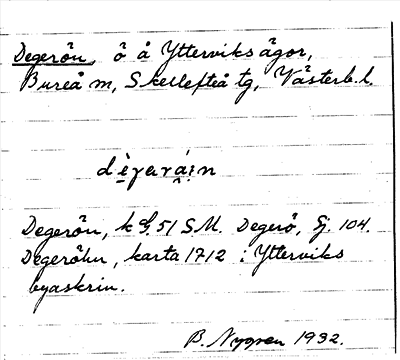 Degerön, ö å Ytterviks ägor,
Bureå m, Skellefteå tg, Västerb. l.
Degerön, k 51 S.M. Degerö, Sj. 104.
Degeröhn, karta 1712 i Ytterviks
byaskrin.
B. Nygren 1932.